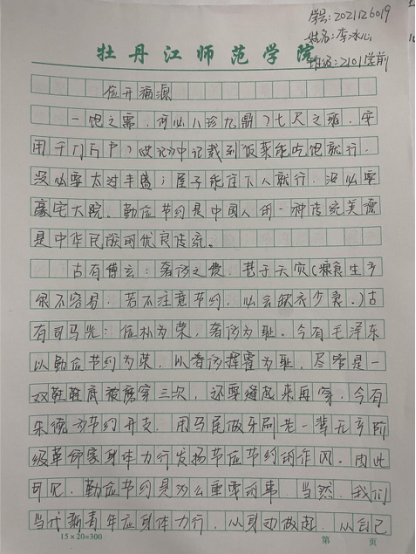 学号:2021126019
姓名:李冰心
班级:2101学前
牡丹江师范学院
节源
一饱之需,何必八珍九鼎?七尺之躯,安
用千门万户?《史记》中记载到饭菜能吃饱就行,
没必要太过丰盛;屋子能住下人就行,没必要
豪宅大院。勤俭节约是中国人的一种传统美德
是中华民族的优良传统。
古有傅玄:奢侈之费,甚于天灾(粮食生产
很不容易,若不注意节约,必会缺衣少食。)古
有司马光:俭朴为荣,奢侈为耻。今有毛泽东
以勤俭节约为荣,以奢侈挥霍为耻,尽管是一
双鞋鞋底被磨穿三次,还要缝起来再穿,今有
朱德为节约开支,用马尾做牙刷老一辈无产阶
级革命家身体力行发扬节俭节约的作风。由此
可见,勤俭节约是为么重要的事,当然,我们
当代新青年应身体力行,从身边做起,从自己
15×20=300
第 页